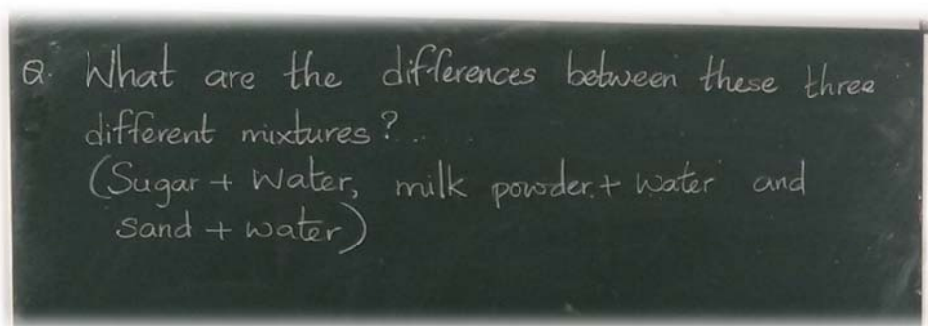 Q. What are the differences between these three
different mixtures?..
(Sugar + Water, milk powder + water and
sand + water)